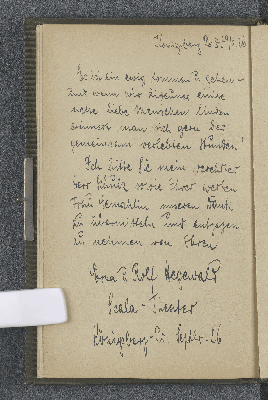 Königsberg Pr. d. 29/9.26
Es ist ein ewig kommen u gehen –
und wenn wir Zigeuner einige
nette liebe Menschen finden
erinnert man sich gern der
gemeinsam verlebten Stunden!
Ich bitte Sie mein verehrter
Herr sowie Ihrer werten
Frau Gemahlin unseren Dank
zu übermitteln und entgegen
zu nehmen von Ihren
u Rolf Hegewald
Scala-Theater
Königsberg Pr. Septbr. 26